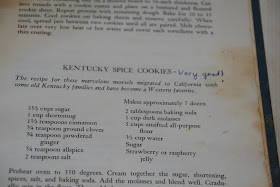 into rounds with a cookie cutter and place on a buttered and floured
cookie sheet. Repeat process with remaining dough. Bake for 10 to 15
minutes. Cool cookies on baking sheets and remove carefully. When
cool, spread jam between two cookies until all are paired. Melt choco-
late over very low heat or hot water and cover each cornflake with a
thin coating.
KENTUCKY SPICE COOKIES - Very good!
The recipe for these marvelous morsels migrated to California with
some old Kentucky families and have become a Western favorite.
Makes approximately 7 dozen
3½ cups sugar
1 cup shortening
1½ teaspoons cinnamon
¼ teaspoon ground cloves
¾ teaspoon powdered
ginger
¼ teaspoon allspice
2 teaspoons salt
2 tablespoons baking soda
1 cup dark molasses
7 cups unsifted all-purpose
flour
½ cup water
Sugar
Strawberry or raspberry
jelly
Preheat oven to 350 degrees. Cream together the sugar, shortening,
spices, salt, and baking soda. Add the molasses and blend well. Gradu-